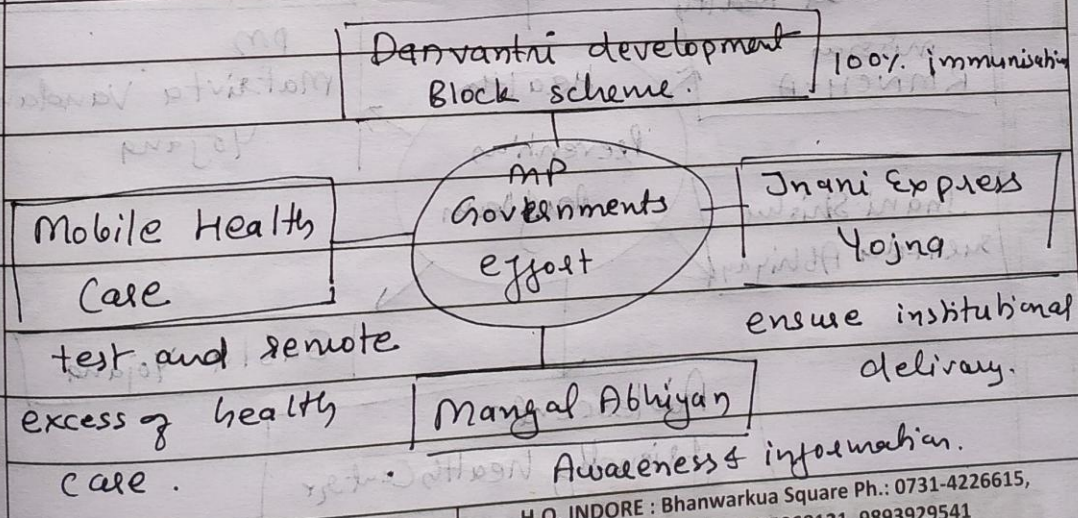 Danvantri development
Block scheme.
100% immunisation
MP
Governments
effort
Mobile Health
Care
test and remote
excess of health
care .
Jnani Express
Yojna
ensure institutional
delivary.
Mangal Abhiyan
Awareness & information.
H.O. INDORE : Bhanwarkua Square Ph.: 0731-4226615,
9893929541